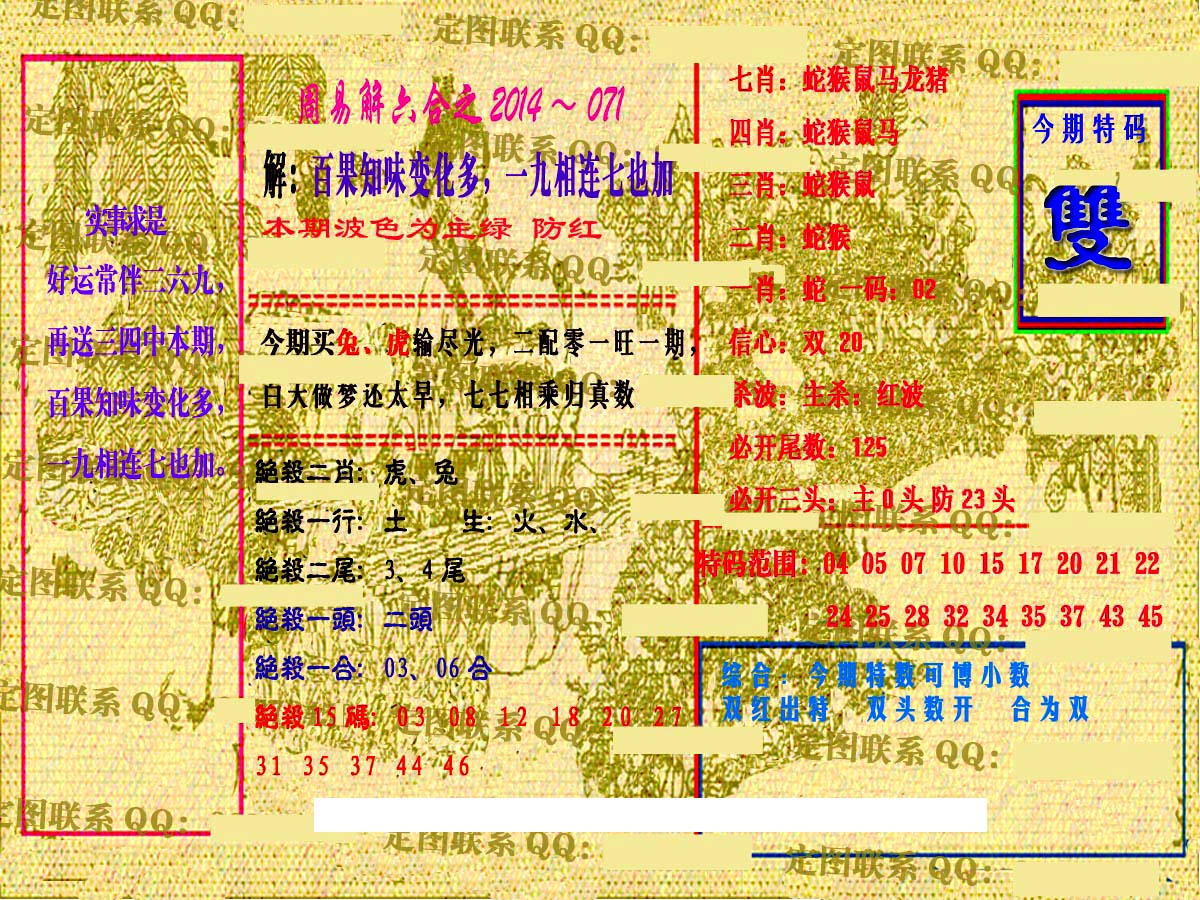 周易解六合之2014～071
解：百果知味变化多，一九相连七也加
本期波色为主绿 防红
实事求是
好运常伴二六九，
再送三四中本期，
百果知味变化多，
一九相连七也加。
今期买兔、虎输尽光，二配零一旺一期，
白大做梦还太早，七七相乘归真数
絕殺二肖：虎、兔
絕殺一行：土 生：火、水、
絕殺二尾：3、4尾
絕殺一頭：二頭
絕殺一合：03、06合
絕殺15碼：03 08 12 18 20 27
31 35 37 44 46
七肖：蛇猴鼠马龙猪
四肖：蛇猴鼠马
三肖：蛇猴鼠
二肖：蛇猴
一肖：蛇 一码：02
信心：双 20
杀波：主杀：红波
必开尾数：125
必开三头：主0头防23头
特码范围：04 05 07 10 15 17 20 21 22
24 25 28 32 34 35 37 43 45
今期特码
雙
综合：今期特数可博小数
双红出特 双头数开 合为双
定图联系QQ：
定图联系QQ：
定图联系QQ：
定图联系QQ：
定图联系QQ：
定图联系QQ：
定图联系QQ：
定图联系QQ：